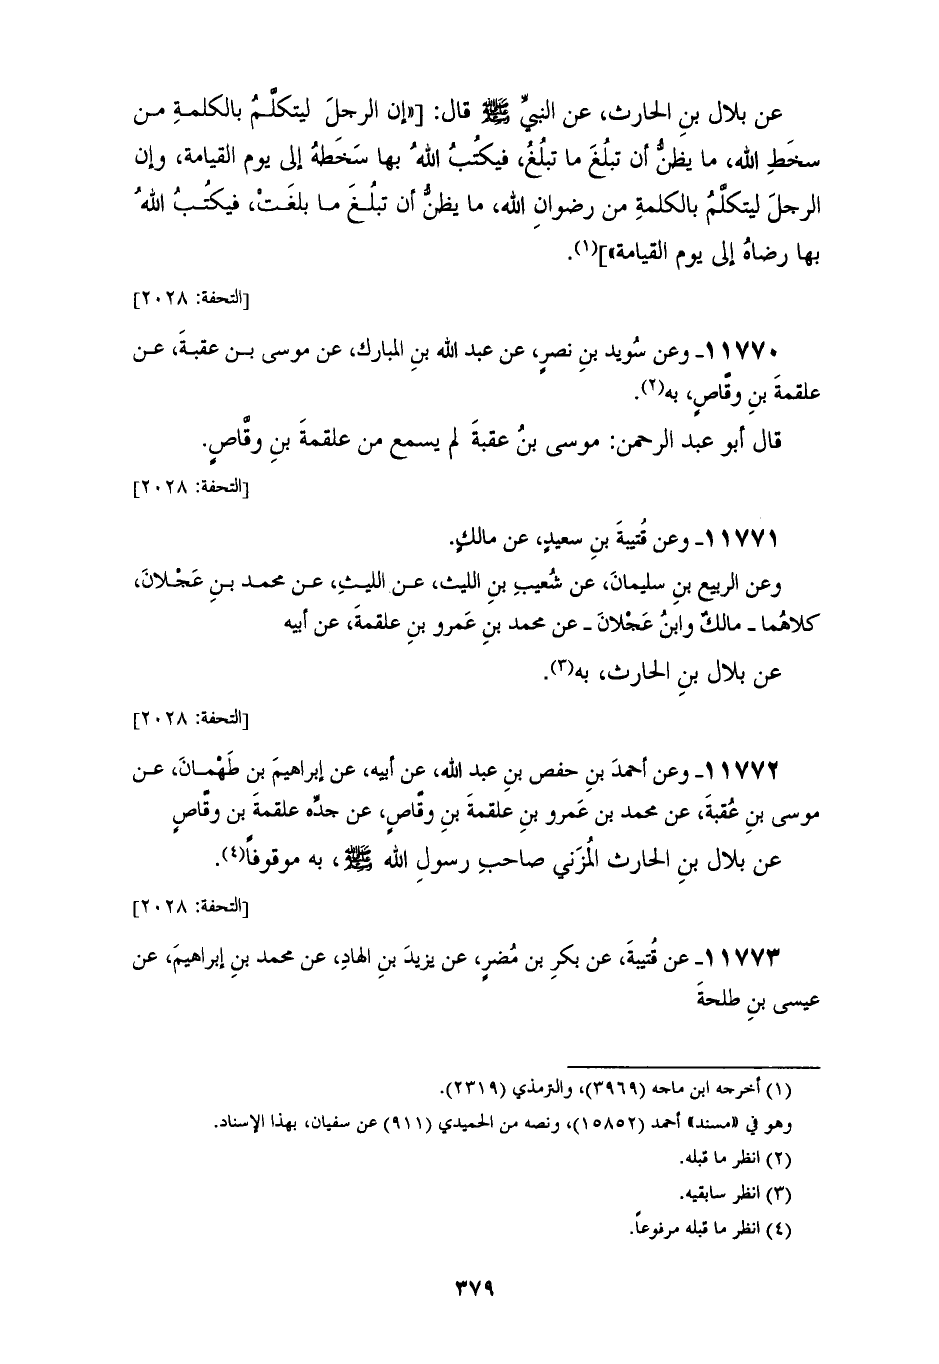 عن بلال بنِ الحارث، عن النبيِّ ﷺ قال: [«إن الرجلَ ليتكلَّمُ بالكلمةِ من
سخَطِ الله، ما يظنُّ أن تبلُغَ ما تبلُغُ، فيكتُبُ اللهُ بها سَخَطهُ إلى يوم القيامة، وإن
الرجلَ ليتكلَّمُ بالكلمةِ من رضوانِ الله، ما يظنُّ أن تبلُغَ ما بلغَتْ، فيكتُبُ اللهُ
بها رضاهُ إلى يوم القيامة»](١).
[التحفة: ٢٠٢٨]
١١٧٧٠ـ وعن سُويد بنِ نصرٍ، عن عبد الله بنِ المبارك، عن موسى بن عقبةَ، عن
علقمةَ بنِ وقَّاصٍ، به(٢).
قال أبو عبد الرحمن: موسى بنُ عقبةَ لم يسمع من علقمةَ بنِ وقَّاصٍ.
[التحفة: ٢٠٢٨]
١١٧٧١ـ وعن قُتيبةَ بنِ سعيدٍ، عن مالكٍ.
وعن الربيع بنِ سليمانَ، عن شُعيبِ بنِ الليث، عن الليثِ، عن محمد بنِ عَجْلانَ،
كلاهُما ـ مالكٌ وابنُ عَجْلانَ ـ عن محمد بنِ عَمرو بنِ علقمةَ، عن أبيه
عن بلال بنِ الحارث، به(٣).
[التحفة: ٢٠٢٨]
١١٧٧٢ـ وعن أحمدَ بنِ حفص بنِ عبد الله، عن أبيه، عن إبراهيمَ بن طَهْمانَ، عن
موسى بنِ عُقبةَ، عن محمد بن عَمرو بنِ علقمةَ بنِ وقَّاصٍ، عن جدِّه علقمةَ بن وقَّاصٍ
عن بلال بنِ الحارث المُزَني صاحبِ رسولِ الله ﷺ، به موقوفاً(٤).
[التحفة: ٢٠٢٨]
١١٧٧٣ـ عن قُتيبةَ، عن بكرِ بن مُضرٍ، عن يزيدَ بنِ الهادِ، عن محمد بنِ إبراهيمَ، عن
عيسى بنِ طلحةَ
(١) أخرجه ابن ماجه (٣٩٦٩)، والترمذي (٢٣١٩).
وهو في «مسند» أحمد (١٥٨٥٢)، ونصه من الحميدي (٩١١) عن سفيان، بهذا الإسناد.
(٢) انظر ما قبله.
(٣) انظر سابقيه.
(٤) انظر ما قبله مرفوعاً.
٣٧٩